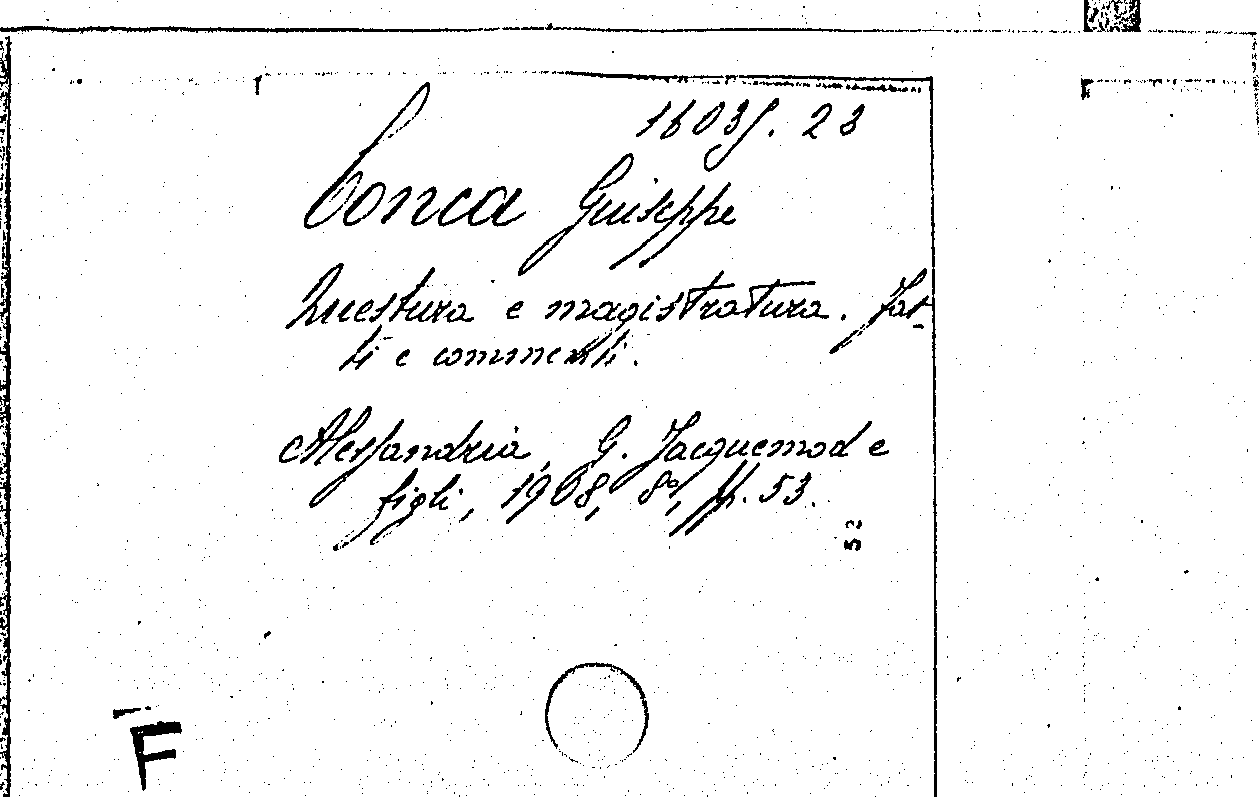 1603f. 23
Conca Giuseppe
Questura e magistratura. Fat-
ti e commenti.
Alessandria, G. Jacquemod e
figli, 1908, 8º, pp. 53.
52
F